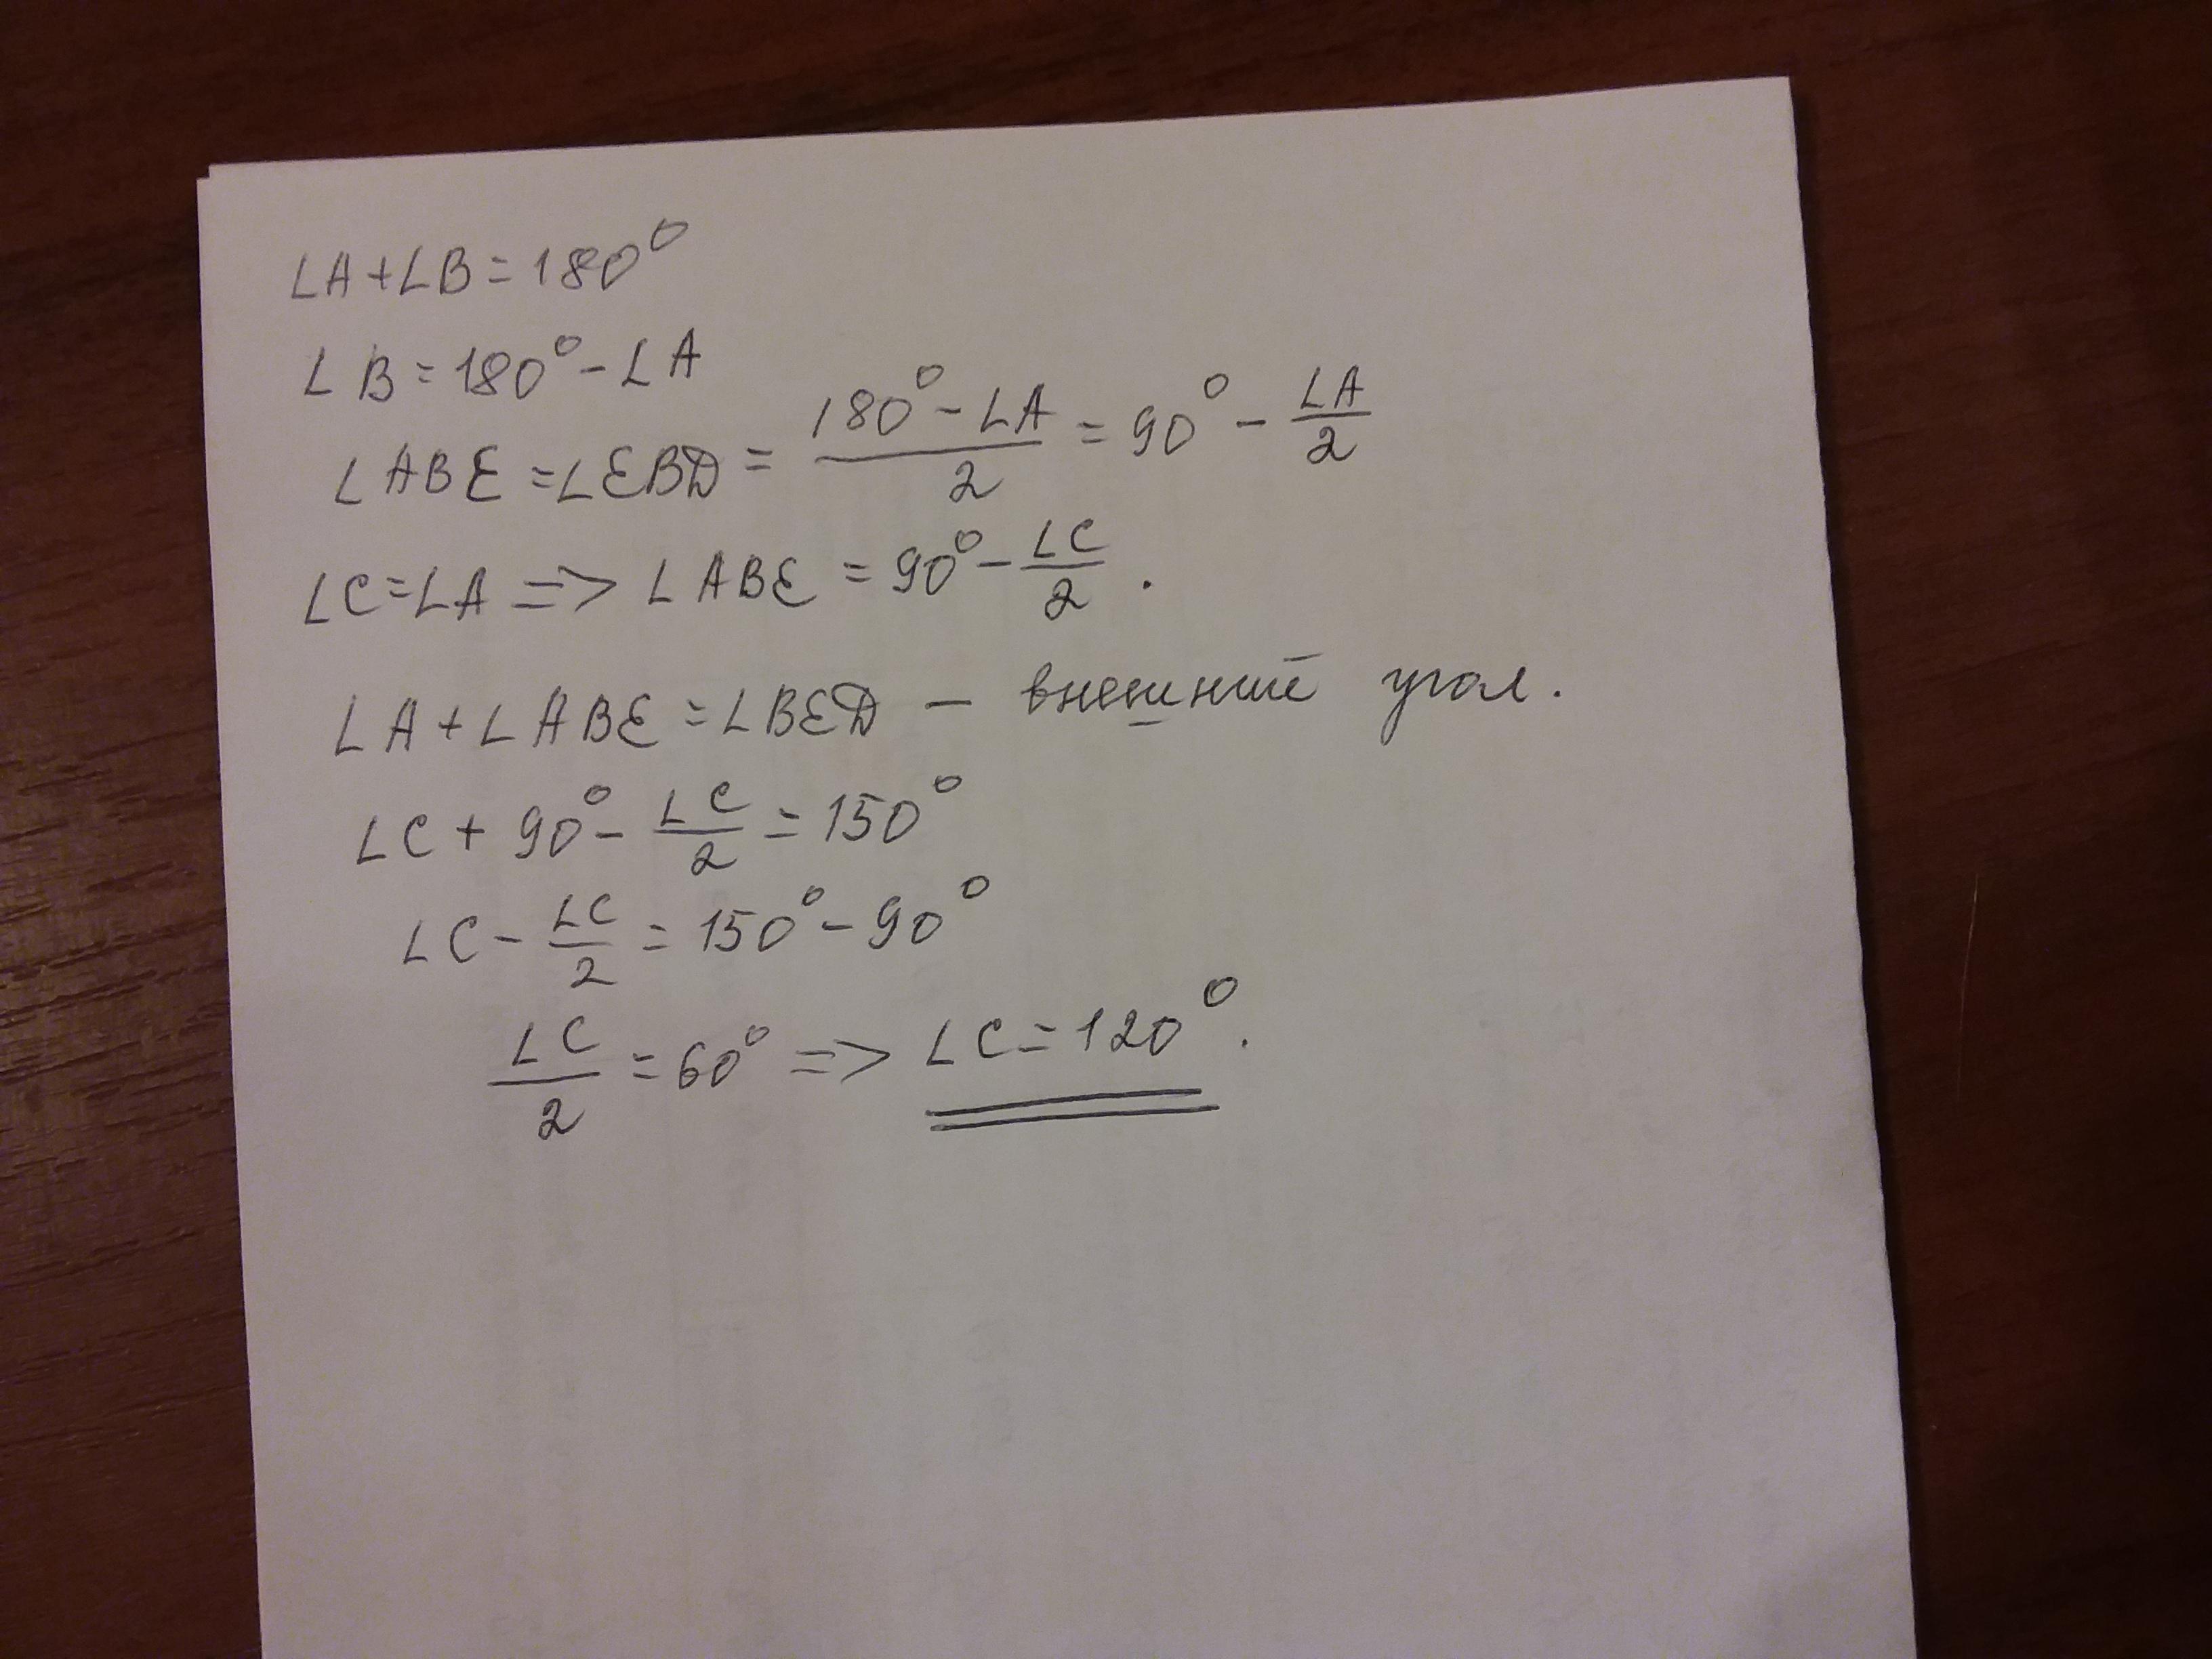 ∠A+∠B=180°
∠B=180°-∠A
∠ABE=∠EBD=(180°-∠A)/2=90°-∠A/2
∠C=∠A => ∠ABE=90°-∠C/2.
∠A+∠ABE=∠BED - внешний угол.
∠C+90°-∠C/2=150°
∠C-∠C/2=150°-90°
∠C/2=60° => ∠C=120°.